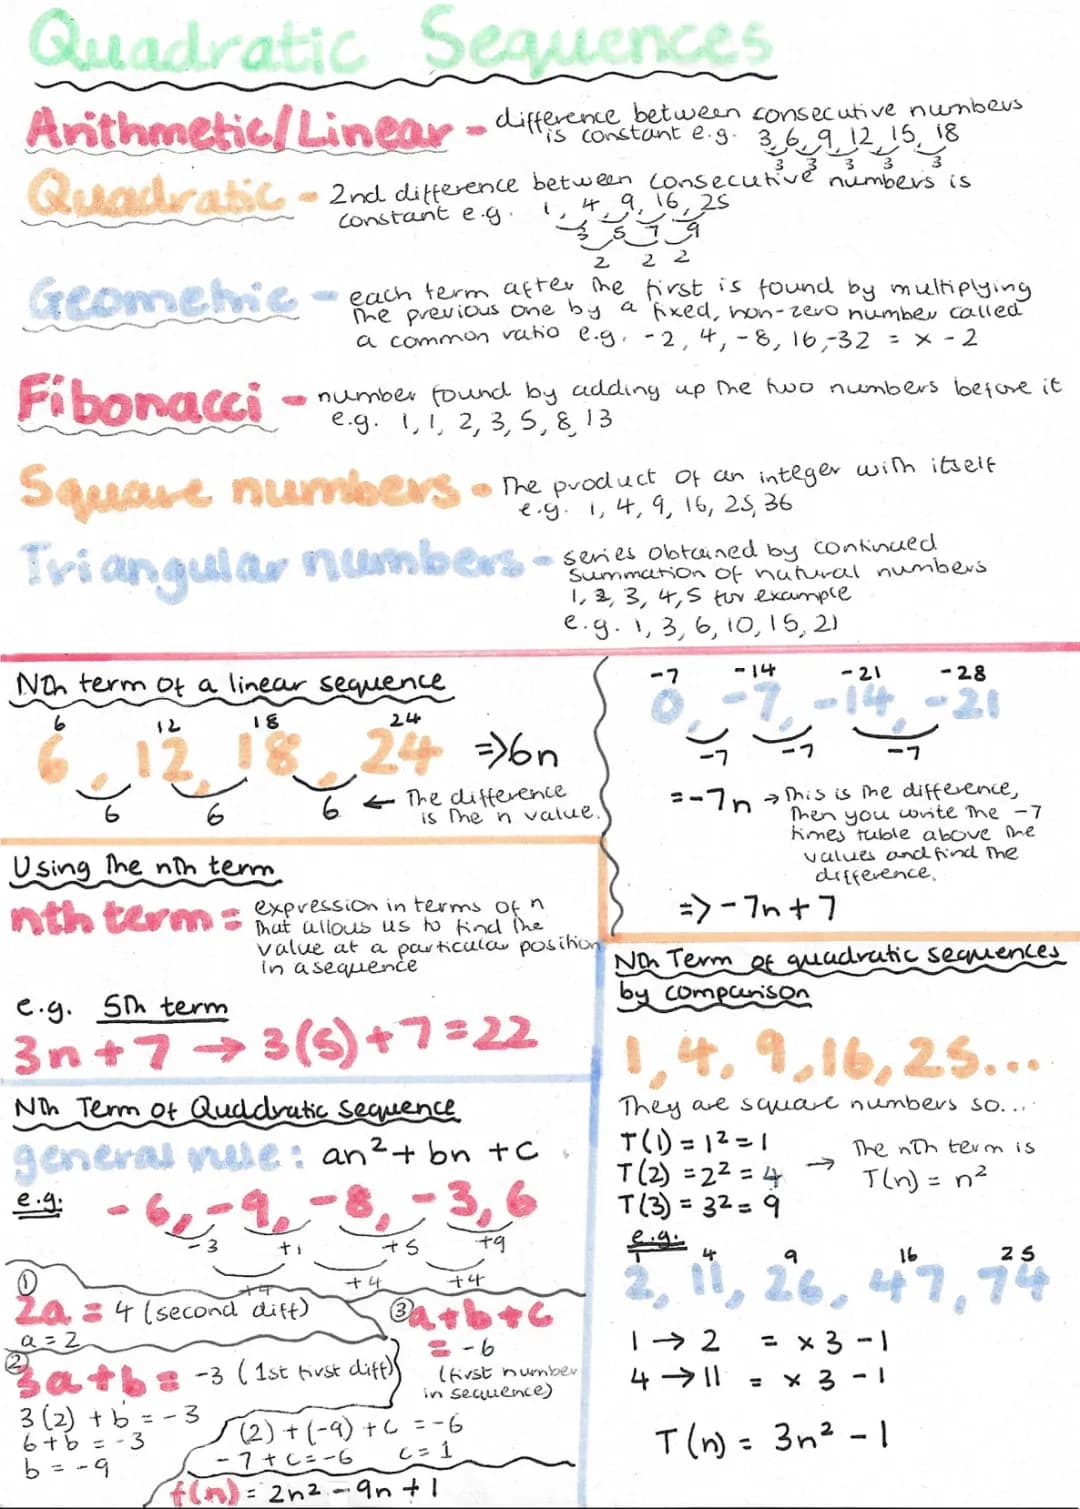 Quadratic Sequences
Arithmetic/Linear - difference between consecutive numbers
is constant e.g. 3, 6, 9, 12, 15, 18
3 3 3 3 3
Quadratic - 2nd difference between consecutive numbers is
constant e.g. 1, 4, 9, 16, 25
3 5 7 9
2 2 2
Geometric - each term after the first is found by multiplying
the previous one by a fixed, non-zero number called
a common ratio e.g. -2, 4, -8, 16, -32 = x - 2
Fibonacci - number found by adding up the two numbers before it
e.g. 1, 1, 2, 3, 5, 8, 13
Square numbers - The product of an integer with itself
e.g. 1, 4, 9, 16, 25, 36
Triangular numbers - series obtained by continued
summation of natural numbers
1, 2, 3, 4, 5 for example
e.g. 1, 3, 6, 10, 15, 21
Nth term of a linear sequence
6 12 18 24
6, 12, 18, 24 => 6n
6 6 6 ← The difference
is the n value.
-7 -14 -21 -28
0, -7, -14, -21
-7 -7 -7
= -7n → This is the difference,
then you write the -7
times table above the
values and find the
difference.
=> -7n + 7
Using the nth term
nth term = expression in terms of n
that allows us to find the
value at a particular position
in a sequence
e.g. 5th term
3n + 7 → 3(5) + 7 = 22
Nth Term of Quadratic Sequence
general rule: an² + bn + c
e.g. -6, -9, -8, -3, 6
-3 +1 +5 +9
+4 +4 +4
① 2a = 4 (second diff)
a = 2
② 3a + b = -3 (1st first diff)
3(2) + b = -3
6 + b = -3
b = -9
③ a + b + c
= -6
(first number
in sequence)
(2) + (-9) + c = -6
-7 + c = -6 c = 1
f(n) = 2n² - 9n + 1
Nth Term of quadratic sequences
by comparison
1, 4, 9, 16, 25...
They are square numbers so...
T(1) = 1² = 1
T(2) = 2² = 4
T(3) = 32 = 9
→ The nth term is
T(n) = n²
e.g.
1 4 9 16 25
2, 11, 26, 47, 74
1 → 2 = x 3 - 1
4 → 11 = x 3 - 1
T(n) = 3n² - 1